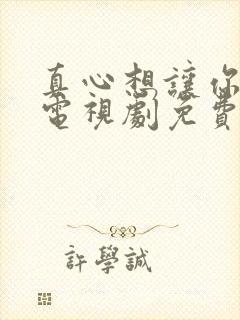 真心想讓你
電視劇免費
許學誠